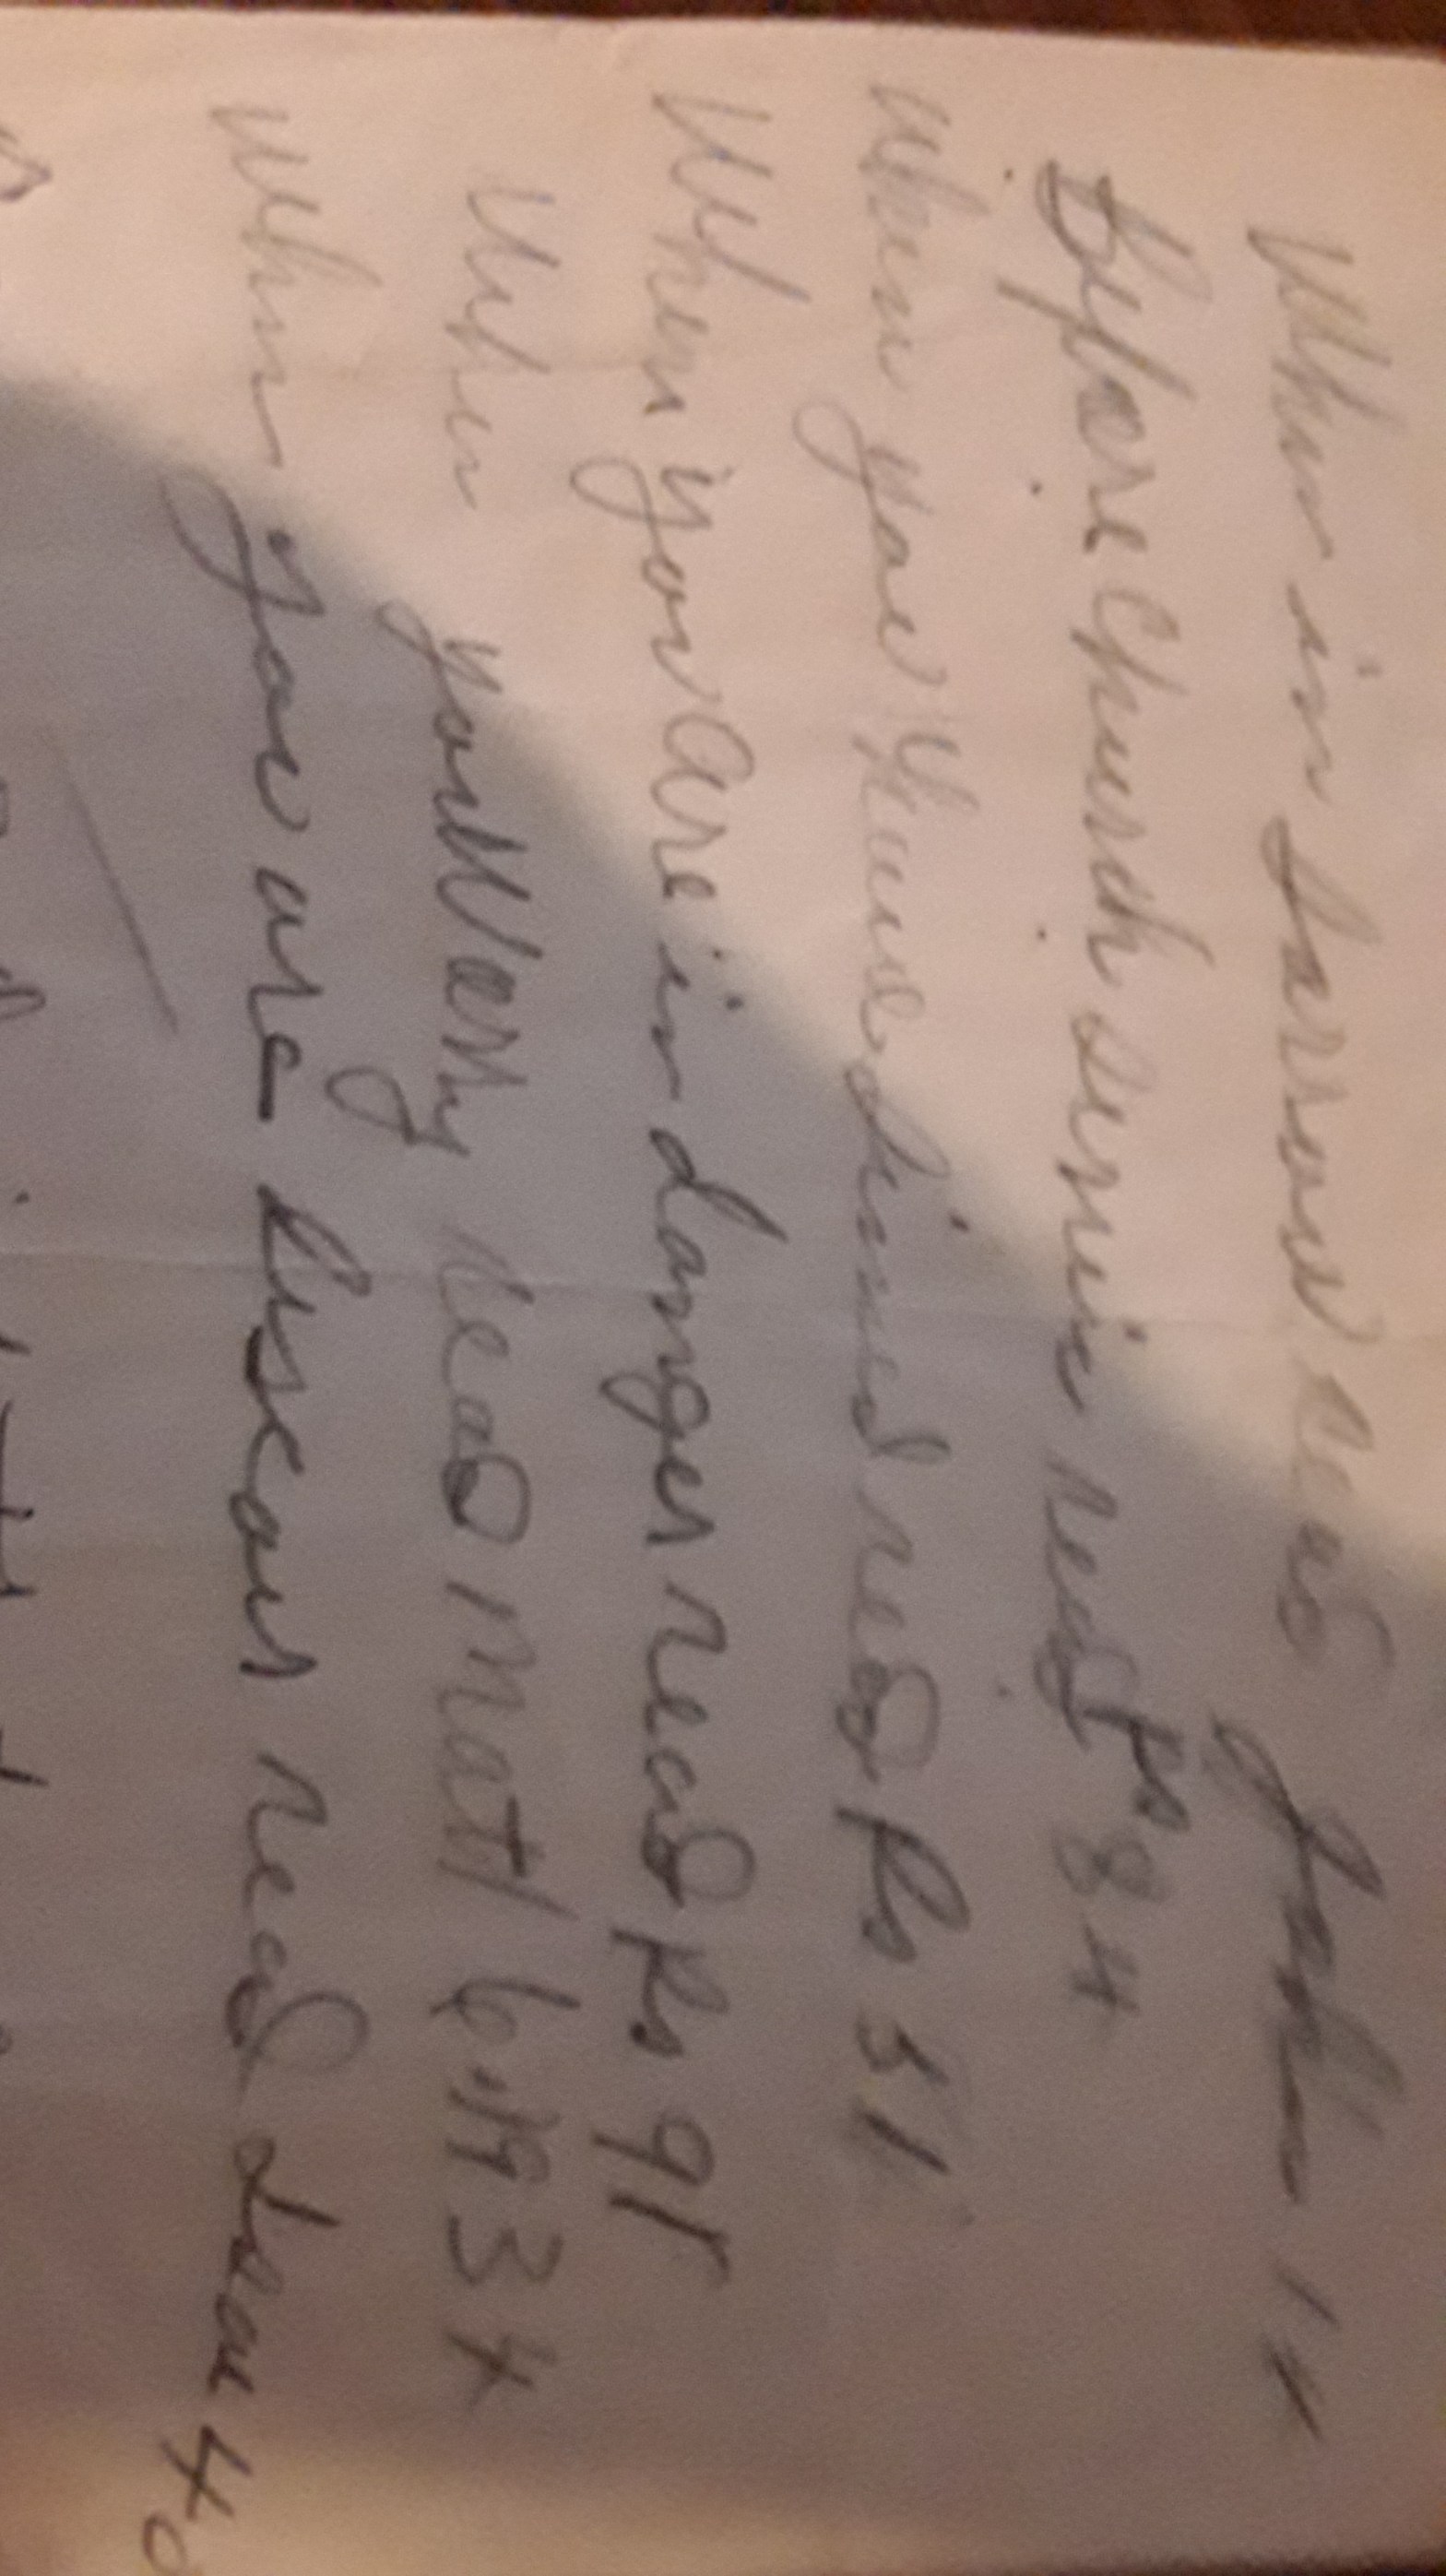 When in sorrow read John 14
Before Church service read Ps 84
When you have sinned read Ps 51
When you are in danger read Ps 91
When you worry read Matt 6:19 34
When you are discour read Isa 40